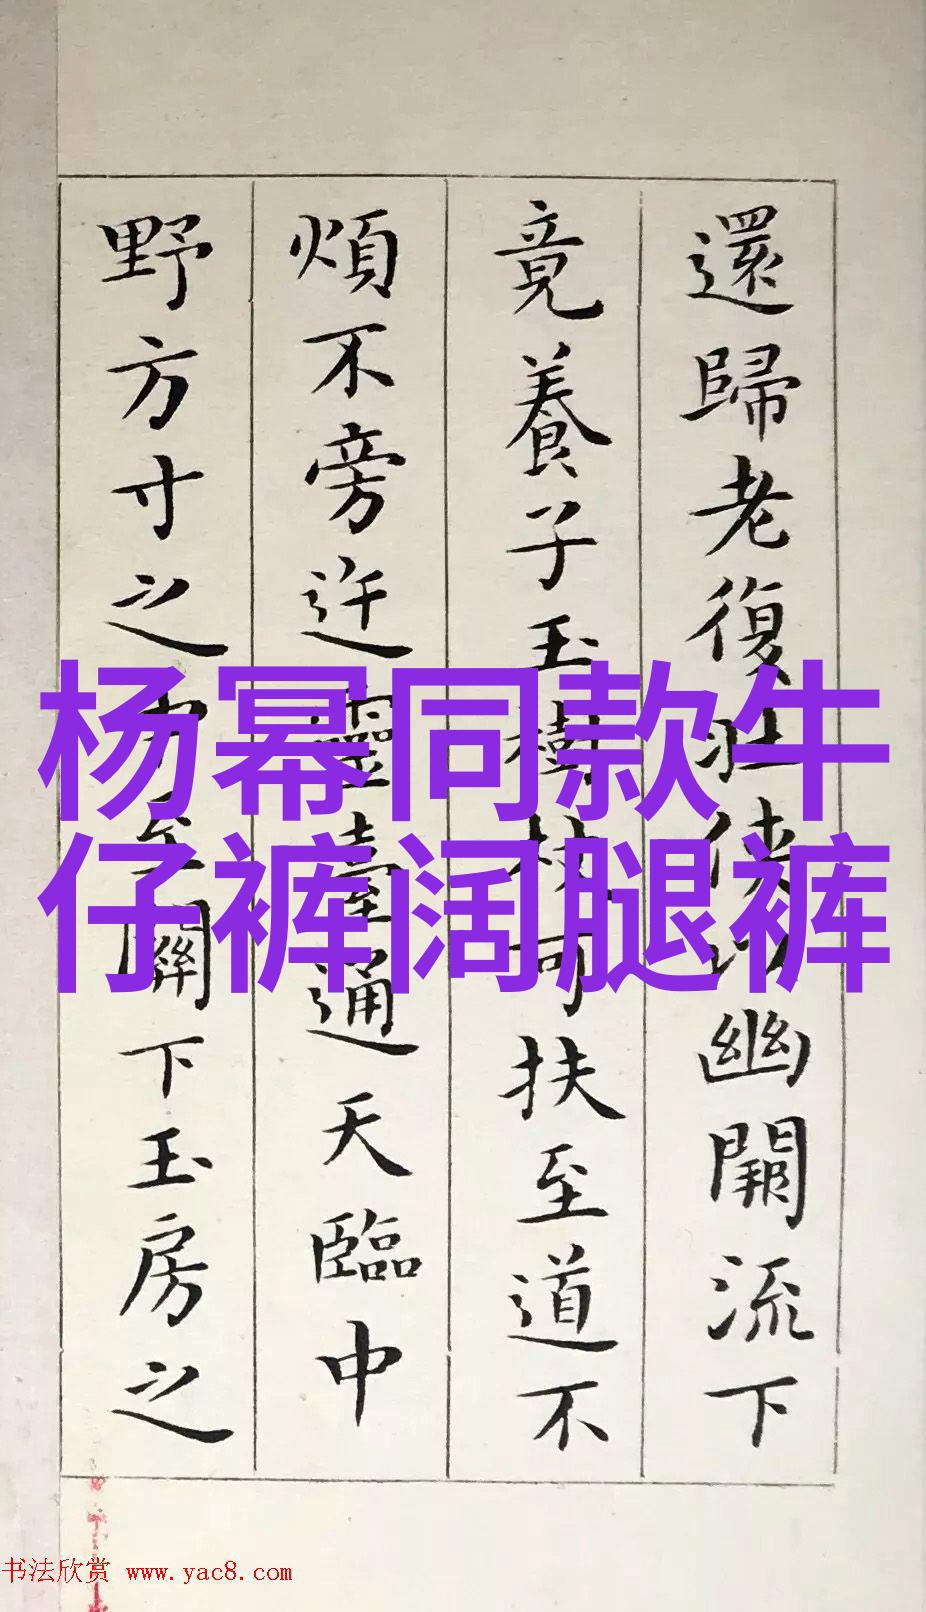 還歸老復壯俠以幽闕流下
竟養子玉樹杖可扶至道不
煩不旁迕靈臺通天臨中
野方寸之中至關下玉房之
杨幂同款牛
仔裤阔腿裤
书法欣赏 www.yac8.com